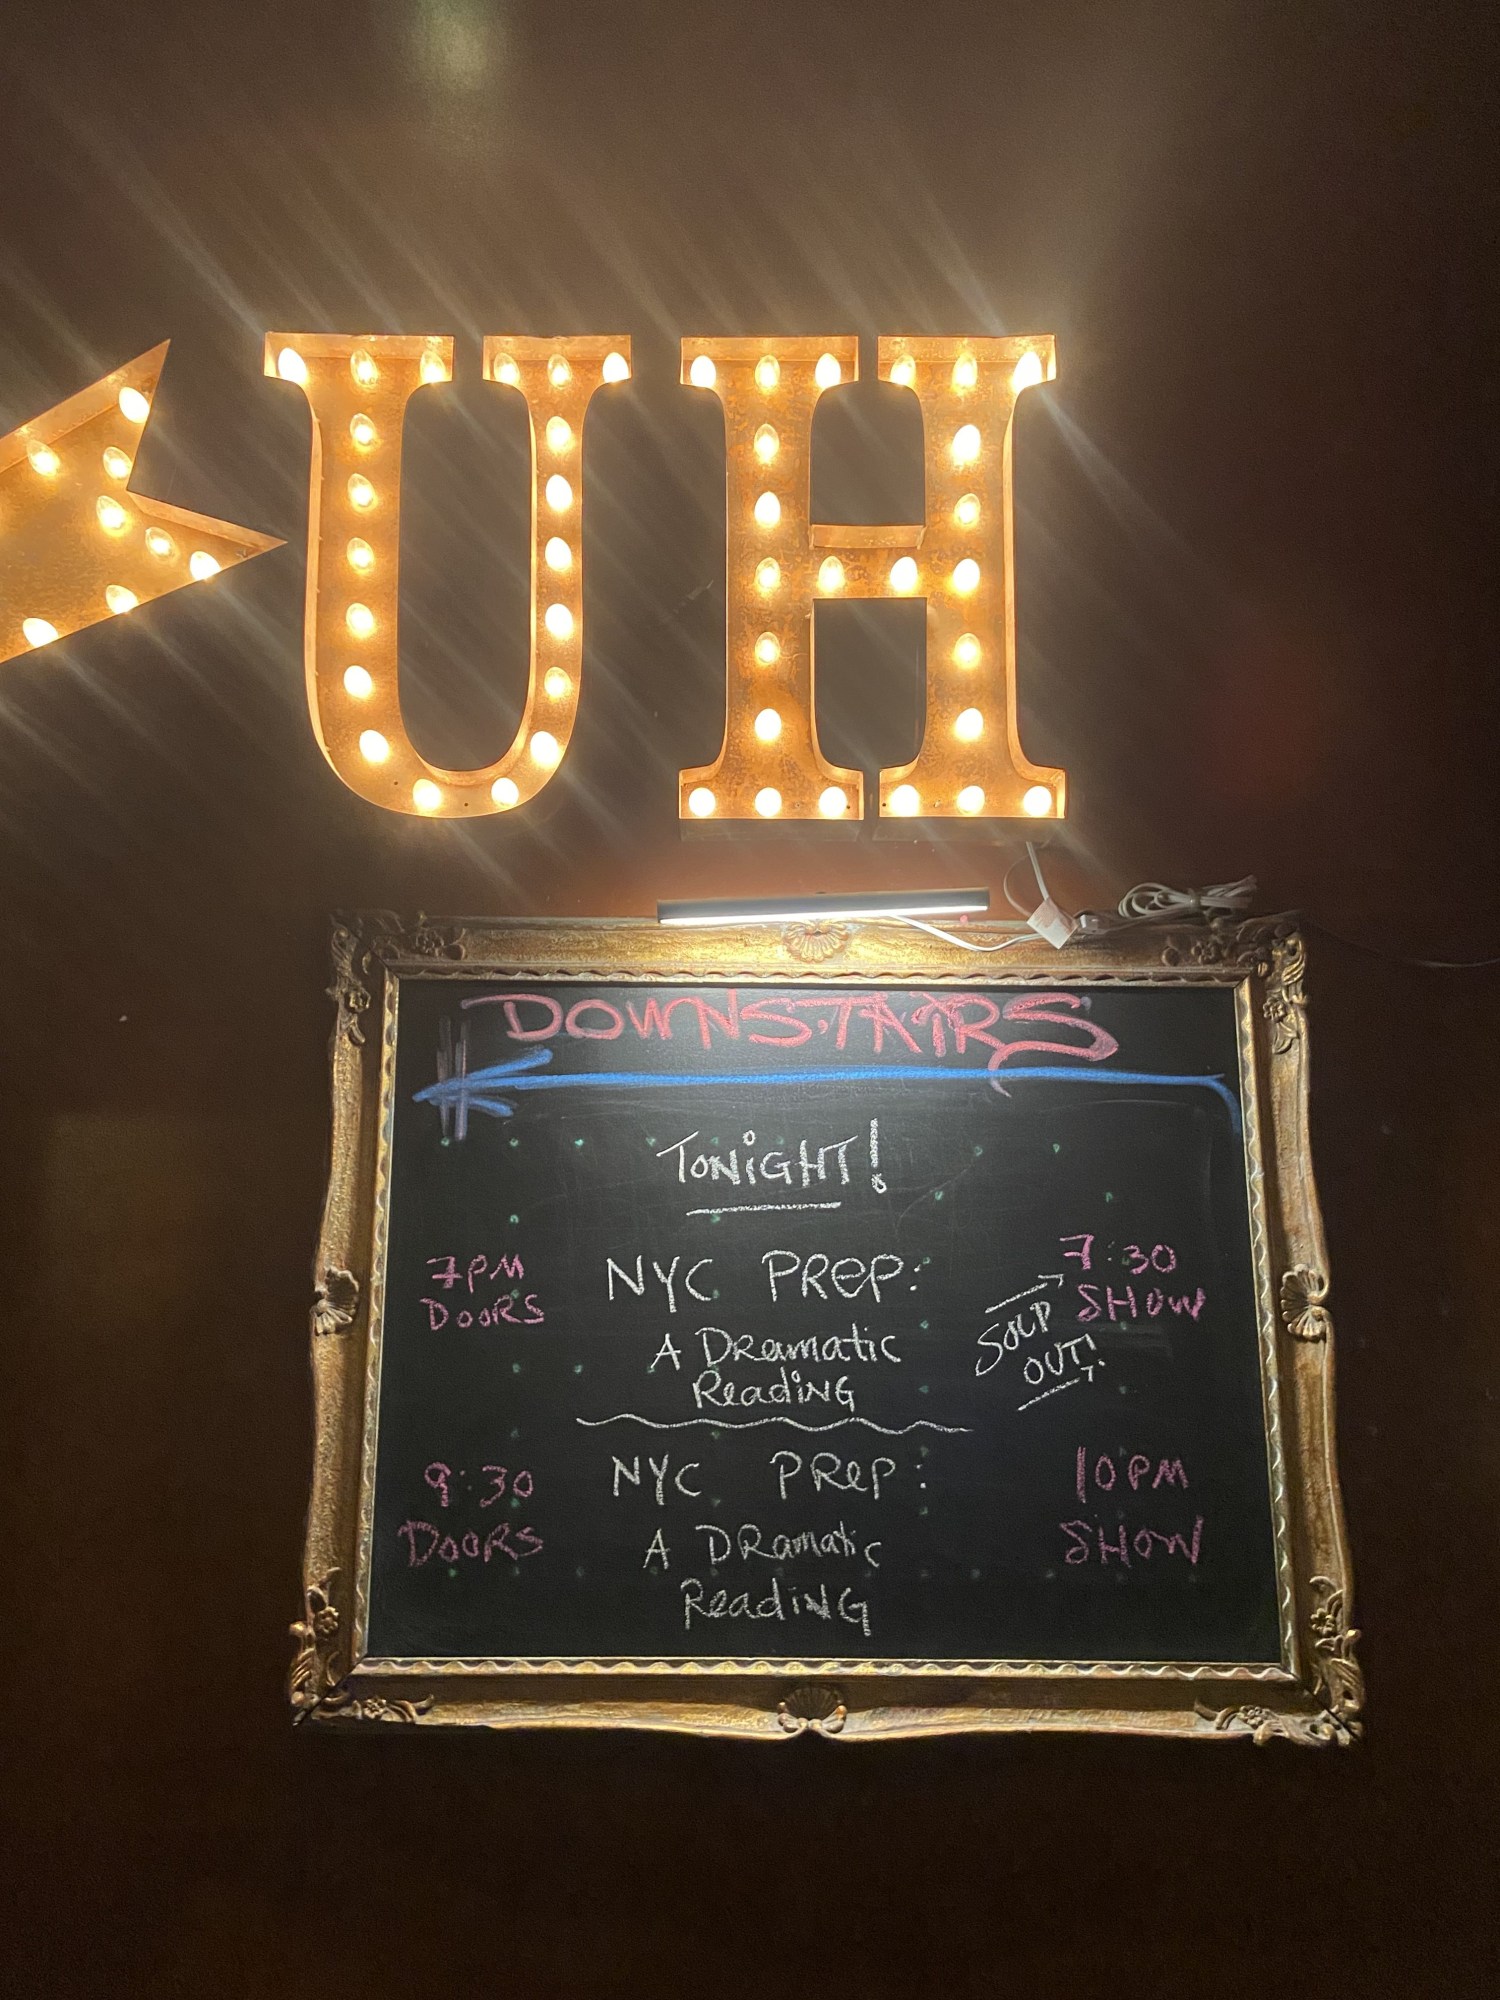 UH
DOWNSTAIRS
TONIGHT!
7PM
DOORS
NYC PREP:
A DRamatic
ReadiNG
7:30
SHOW
SOLD
OUT!
9:30
DOORS
NYC PRep:
A DRamatic
ReadiNG
10PM
SHOW